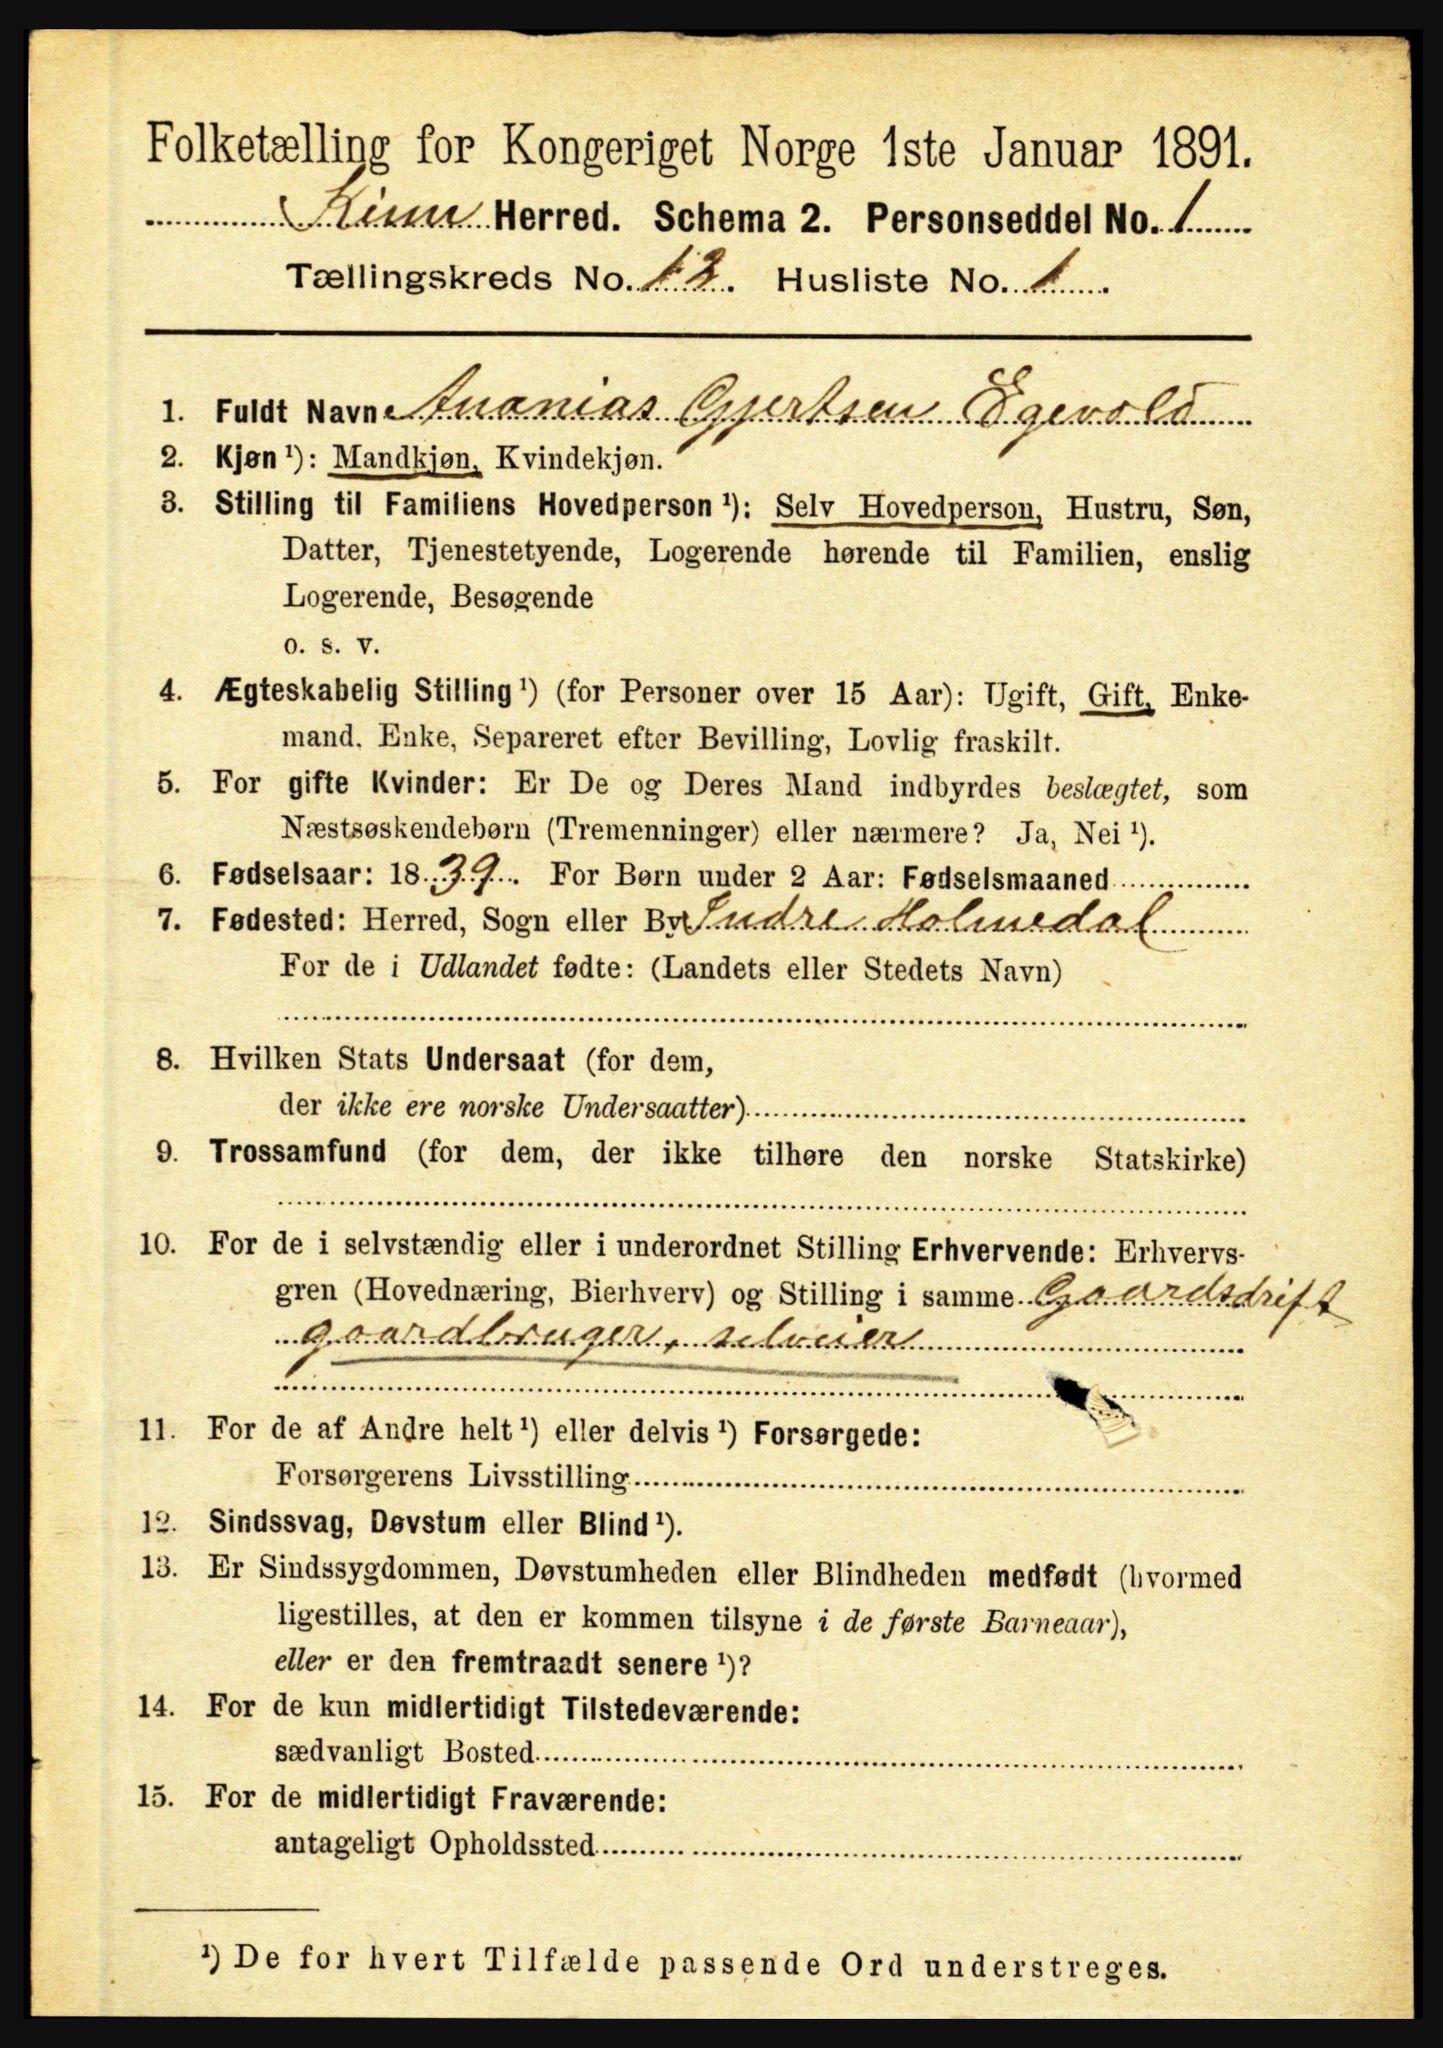 Folketælling for Kongeriget Norge 1ste Januar 1891.
Kinn Herred. Schema 2. Personseddel No. 1
Tællingskreds No. 12. Husliste No. 1.
1. Fuldt Navn: Ananias Gjertsen Egevold
2. Kjøn¹): Mandkjøn, Kvindekjøn.
3. Stilling til Familiens Hovedperson¹): Selv Hovedperson, Hustru, Søn,
Datter, Tjenestetyende, Logerende hørende til Familien, enslig
Logerende, Besøgende
o. s. v.
4. Ægteskabelig Stilling¹) (for Personer over 15 Aar): Ugift, Gift, Enke-
mand, Enke, Separeret efter Bevilling, Lovlig fraskilt.
5. For gifte Kvinder: Er De og Deres Mand indbyrdes beslægtet, som
Næstsøskendebørn (Tremenninger) eller nærmere? Ja, Nei¹).
6. Fødselsaar: 1839. For Børn under 2 Aar: Fødselsmaaned
7. Fødested: Herred, Sogn eller By Indre Holmedal
For de i Udlandet fødte: (Landets eller Stedets Navn)
8. Hvilken Stats Undersaat (for dem,
der ikke ere norske Undersaatter)
9. Trossamfund (for dem, der ikke tilhøre den norske Statskirke)
10. For de i selvstændig eller i underordnet Stilling Erhvervende: Erhvervs-
gren (Hovednæring, Bierhverv) og Stilling i samme Gaardsdrift
gaardbruger, selveier
11. For de af Andre helt¹) eller delvis¹) Forsørgede:
Forsørgerens Livsstilling
12. Sindssvag, Døvstum eller Blind¹).
13. Er Sindssygdommen, Døvstumheden eller Blindheden medfødt (hvormed
ligestilles, at den er kommen tilsyne i de første Barneaar),
eller er den fremtraadt senere¹)?
14. For de kun midlertidigt Tilstedeværende:
sædvanligt Bosted
15. For de midlertidigt Fraværende:
antageligt Opholdssted
¹) De for hvert Tilfælde passende Ord understreges.